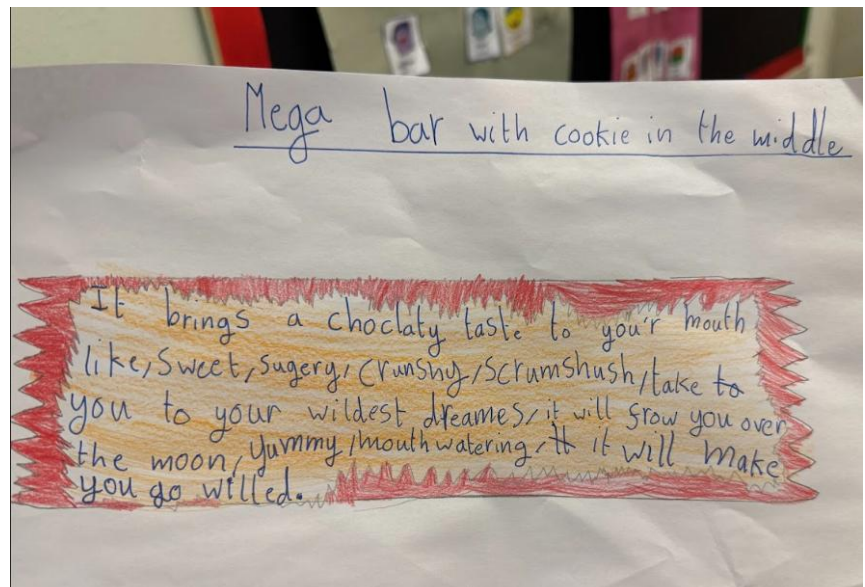 Mega bar with cookie in the middle
It brings a choclaty taste to you'r mouth
like, sweet, sugery, crunshy, scrumshush, take to
you to your wildest dreames, it will frow you over
the moon, yummy, mouthwatering, it it will make
you go willed.